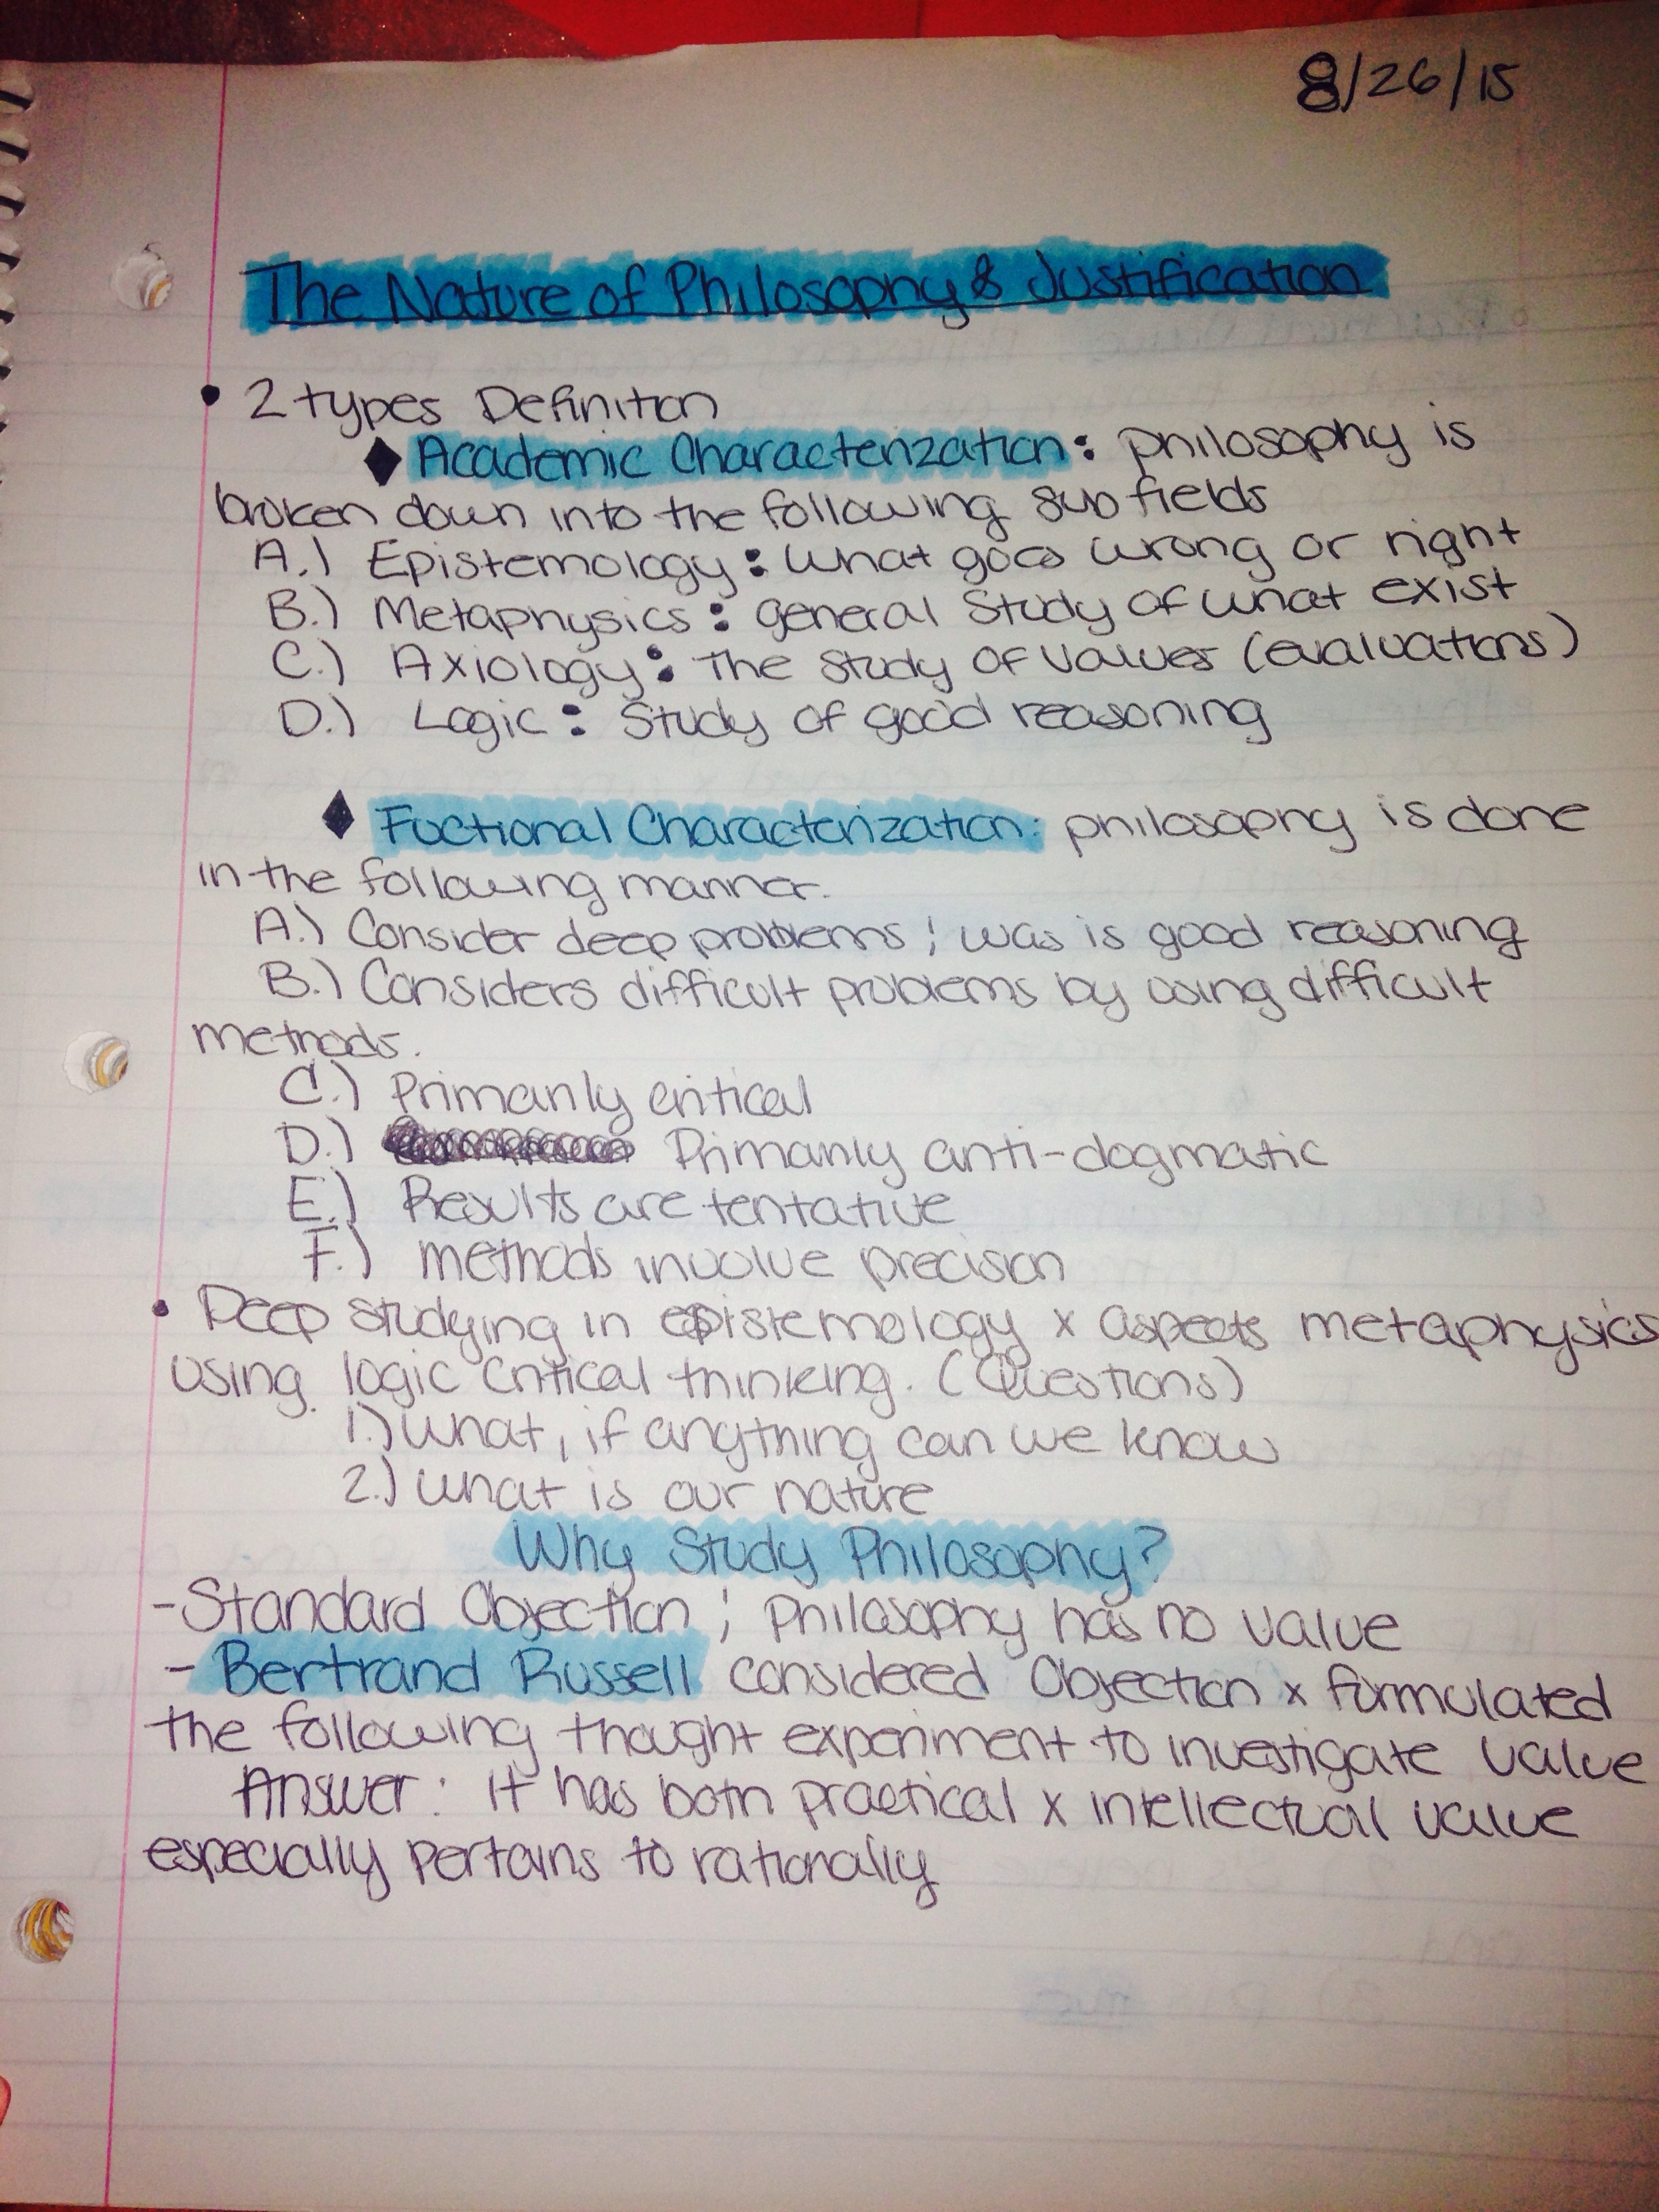 8/26/15
The Nature of Philosophy & Justification
• 2 types Definition
◆ Academic Characterization: philosophy is
broken down into the following sub fields
A.) Epistemology: what goes wrong or right
B.) Metaphysics: general study of what exist
C.) Axiology: The study of values (evaluations)
D.) Logic: Study of good reasoning
◆ Fuctional Characterization: philosophy is done
in the following manner.
A.) Consider deep problems; was is good reasoning
B.) Considers difficult problems by using difficult
methods.
C.) Primarily critical
D.) Primarily anti-dogmatic
E.) Results are tentative
F.) methods involve precision
• Deep studying in epistemology x aspects metaphysics
using logic critical thinking. (Questions)
1.) what, if anything can we know
2.) what is our nature
Why Study Philosophy?
- Standard Objection; Philosophy has no value
- Bertrand Russell considered Objection x formulated
the following thought experiment to investigate value
Answer: It has both practical x intellectual value
especially pertains to rationally